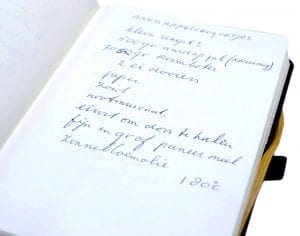 aardappelkroketjes
klein recept:
500gr aardappel (kruimig)
70 gr roomboter
2 eidooiers
peper
zout
nootmuscaat
eiwit om door te halen
fijn en grof paneermeel
zonnebloemolie
180°c